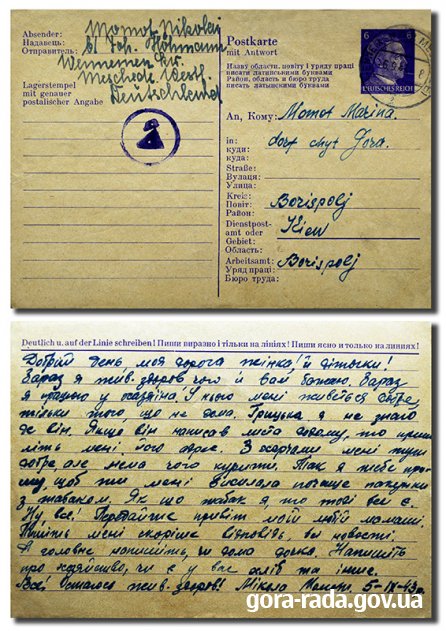 Absender:
Надавець:
Отправитель:
Momot Nikolaj
bl Joh.
Wennemen Kr.
Meschede Westf.
Deutschland
Lagerstempel
mit genauer
postalischer Angabe
Postkarte
mit Antwort
Назву области, повіту і уряду праці
писати латинськими буквами
Район, область и бюро труда
писать латынскими буквами
6 6
DEUTSCHES REICH
An, Кому: Momot Marina.
in: dorf chyt Gora.
куди:
куда:
Straße:
Вулаця:
Улица:
Kreis: Borispolj
Повіт:
Район:
Dienstpost-
amt oder Kiew
Gebiet:
Область:
Arbeitsamt: Borispolj
Уряд праці:
Бюро труда:
Deutlich u. auf der Linie schreiben! Пиши виразно і тільки на лініях! Пиши ясно и только на линиях!
Добрий день моя дорога жінка! й діточки!
Зараз я жив. здоров чого й вам бажаю. Зараз
я працюю у хазяїна. У нього мені живеться добре
тільки того що не дома. Грицька я не знаю
де він. Якщо він написав листа додому, то приш
літь мені його адрес. З харчами мені
добре, але нема чого курити. Так я тебе про
шу, щоб ти мені вислала
з табаком. Як що табак
Ну все! Передайте привіт моїй мамаші.
Пишіть мені скоріше відповідь, всі новості.
А головне напишіть, чи дома дочка. Напишіть
про хазяйство, чи є у вас хліб та інше.
Все! Остаюсь жив. здоров! Мікола Момот. 5-IX-43р
gora-rada.gov.ua